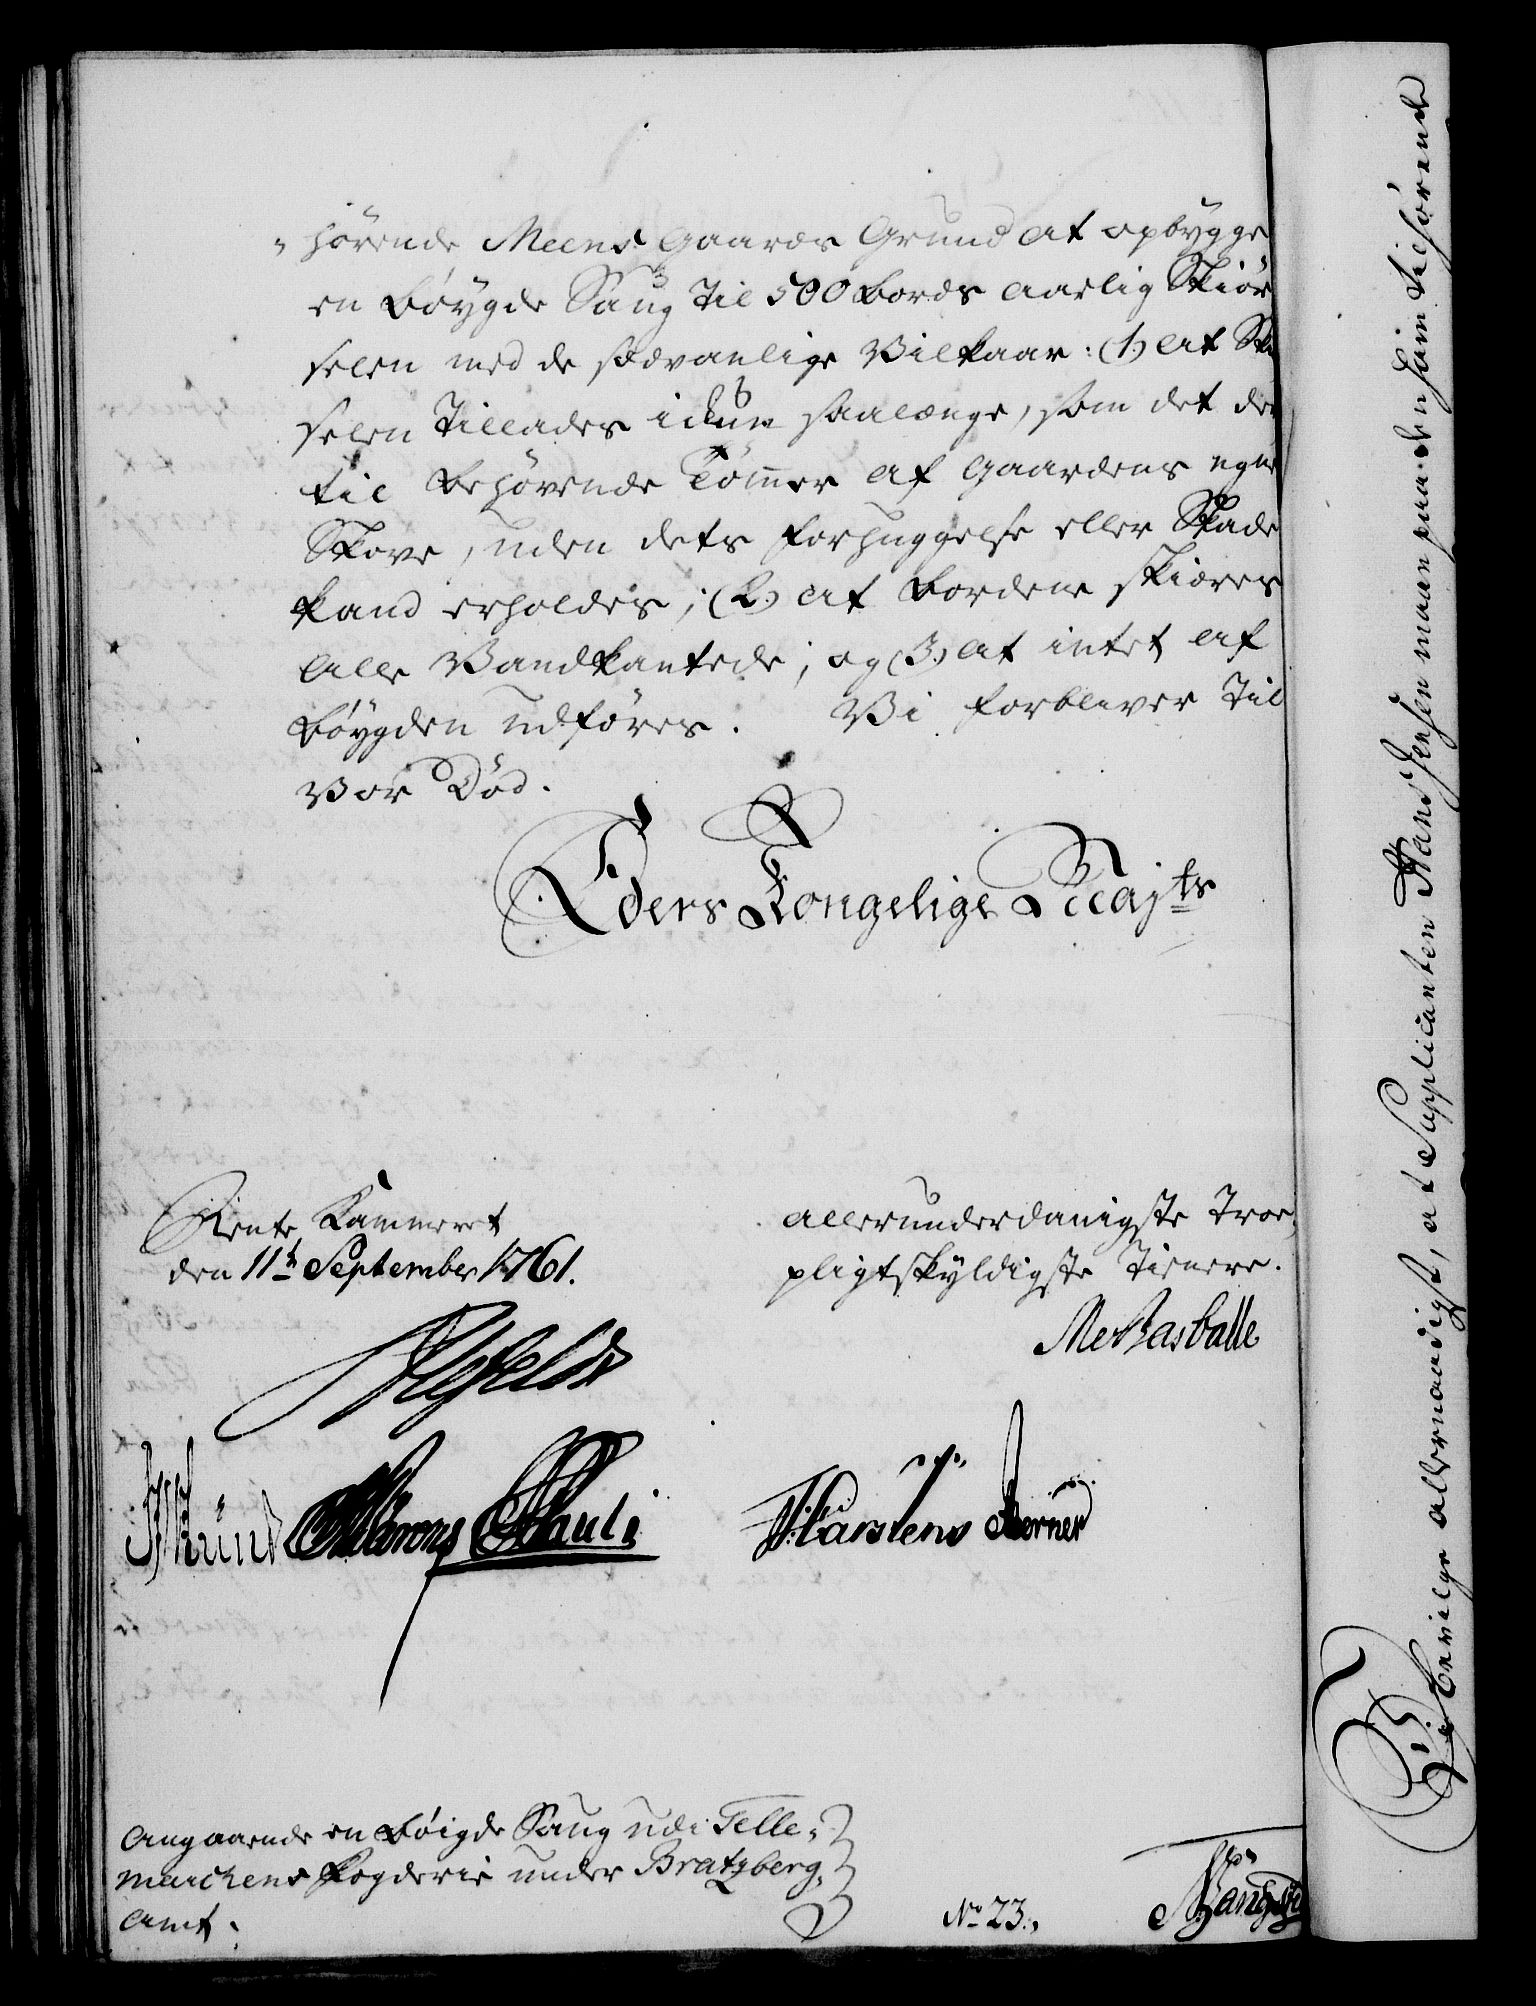 „hørende Meens Gaards Grund at opbygge
en Bøygde Saug til 500 Bords aarlig Skiør
selen med de sædvanlige Vilkaar: (1.) At Skiø
selen tillades ickun saalænge, som det der
til behøvende Tømmer af Gaardens egne
Skove, uden dets forhuggelse eller Skade
kand erholdes; (2.) At Bordene skiæres
alle Vandkantede; og (3.) At intet af
Bøygden udføres. Vi forbliver til
vor Død.
Eders Kongelige Mayts
Rente Kammeret
den 11th September 1761.
allerunderdanigste Troe,
pligtskyldigste Tienere.
Ahlefeldt
Pauli
Karstens
Angaaende en Bøigde Saug udi Telle„
marchens Fogderie under Bratzberg
Amt.
No 23.
Vi bevilge allernaadigst, at Supplicanten Hans Jensen maae paa den ham tilhørende